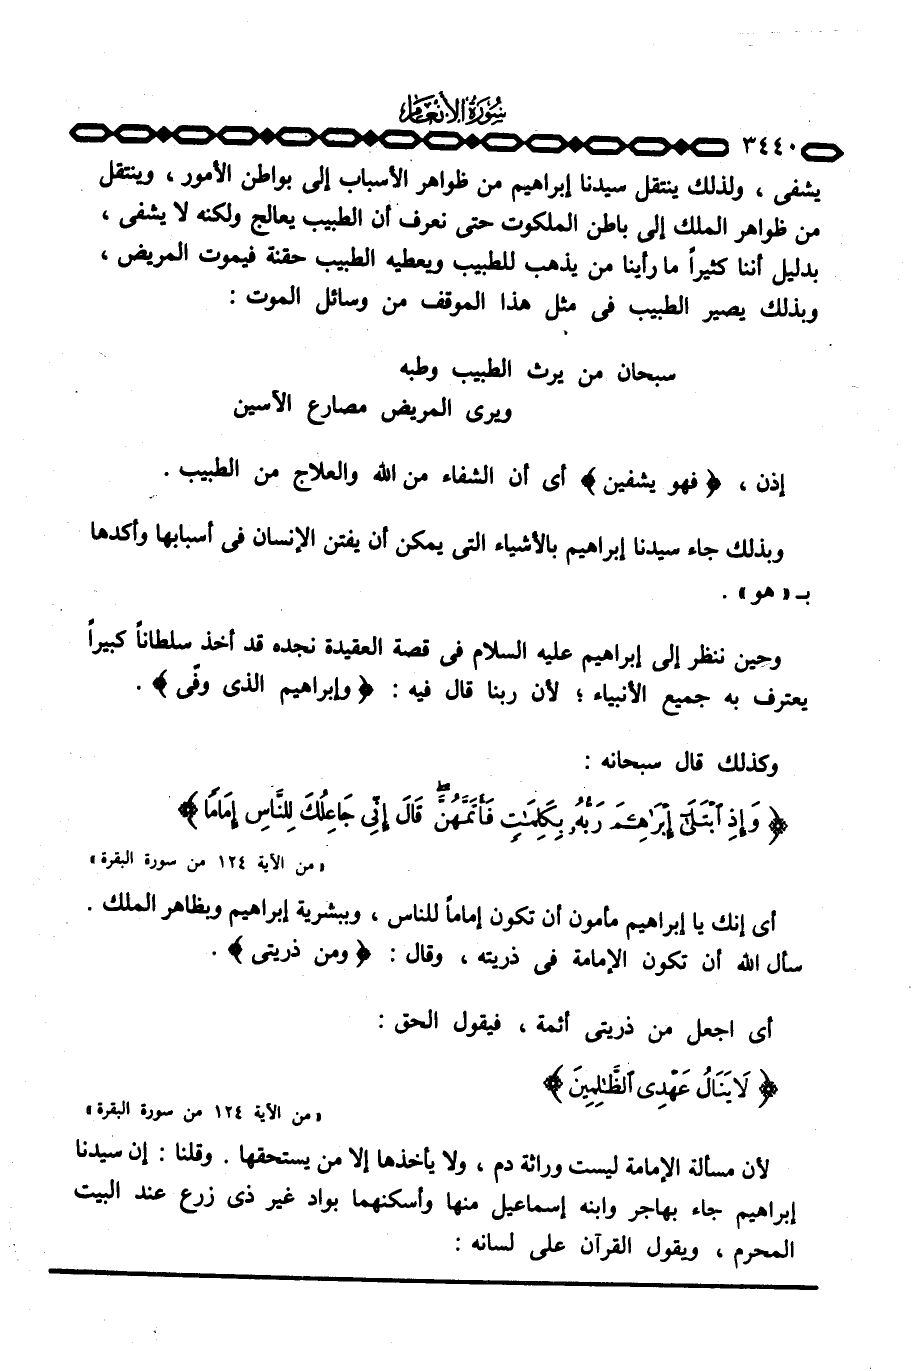 سورة الأنعام
٣٤٤٠
يشفى ، ولذلك ينتقل سيدنا إبراهيم من ظواهر الأسباب إلى بواطن الأمور ، وينتقل
من ظواهر الملك إلى باطن الملكوت حتى نعرف أن الطبيب يعالج ولكنه لا يشفى ،
بدليل أننا كثيراً ما رأينا من يذهب للطبيب ويعطيه الطبيب حقنة فيموت المريض ،
وبذلك يصير الطبيب فى مثل هذا الموقف من وسائل الموت :
سبحان من يرث الطبيب وطبه
ويرى المريض مصارع الآسين
إذن ، ﴿ فهو يشفين ﴾ أى أن الشفاء من الله والعلاج من الطبيب .
وبذلك جاء سيدنا إبراهيم بالأشياء التى يمكن أن يفتن الإنسان فى أسبابها وأكدها
بـ « هو » .
وحين ننظر إلى إبراهيم عليه السلام فى قصة العقيدة نجده قد أخذ سلطاناً كبيراً
يعترف به جميع الأنبياء ؛ لأن ربنا قال فيه : ﴿ وإبراهيم الذى وفّى ﴾ .
وكذلك قال سبحانه :
﴿ وَإِذِ ٱبْتَلَىٰٓ إِبْرَٰهِـۧمَ رَبُّهُۥ بِكَلِمَـٰتٍ فَأَتَمَّهُنَّ ۖ قَالَ إِنِّى جَاعِلُكَ لِلنَّاسِ إِمَامًا ﴾
« من الآية ١٢٤ من سورة البقرة »
أى إنك يا إبراهيم مأمون أن تكون إماماً للناس ، وببشرية إبراهيم وبظاهر الملك .
سأل الله أن تكون الإمامة فى ذريته ، وقال : ﴿ ومن ذريتى ﴾ .
أى اجعل من ذريتى أئمة ، فيقول الحق :
﴿ لَا يَنَالُ عَهْدِى ٱلظَّـٰلِمِينَ ﴾
« من الآية ١٢٤ من سورة البقرة »
لأن مسألة الإمامة ليست وراثة دم ، ولا يأخذها إلا من يستحقها . وقلنا : إن سيدنا
إبراهيم جاء بهاجر وابنه إسماعيل منها وأسكنهما بواد غير ذى زرع عند البيت
المحرم ، ويقول القرآن على لسانه :